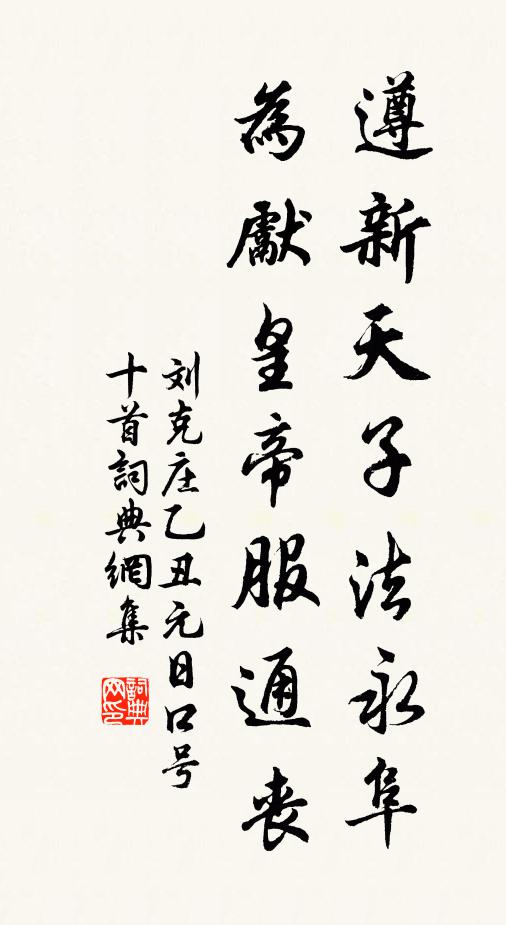 遵新天子法永阜
為獻皇帝服通喪
刘克庄乙丑元日口号
十首詞典網集
詞典
网印